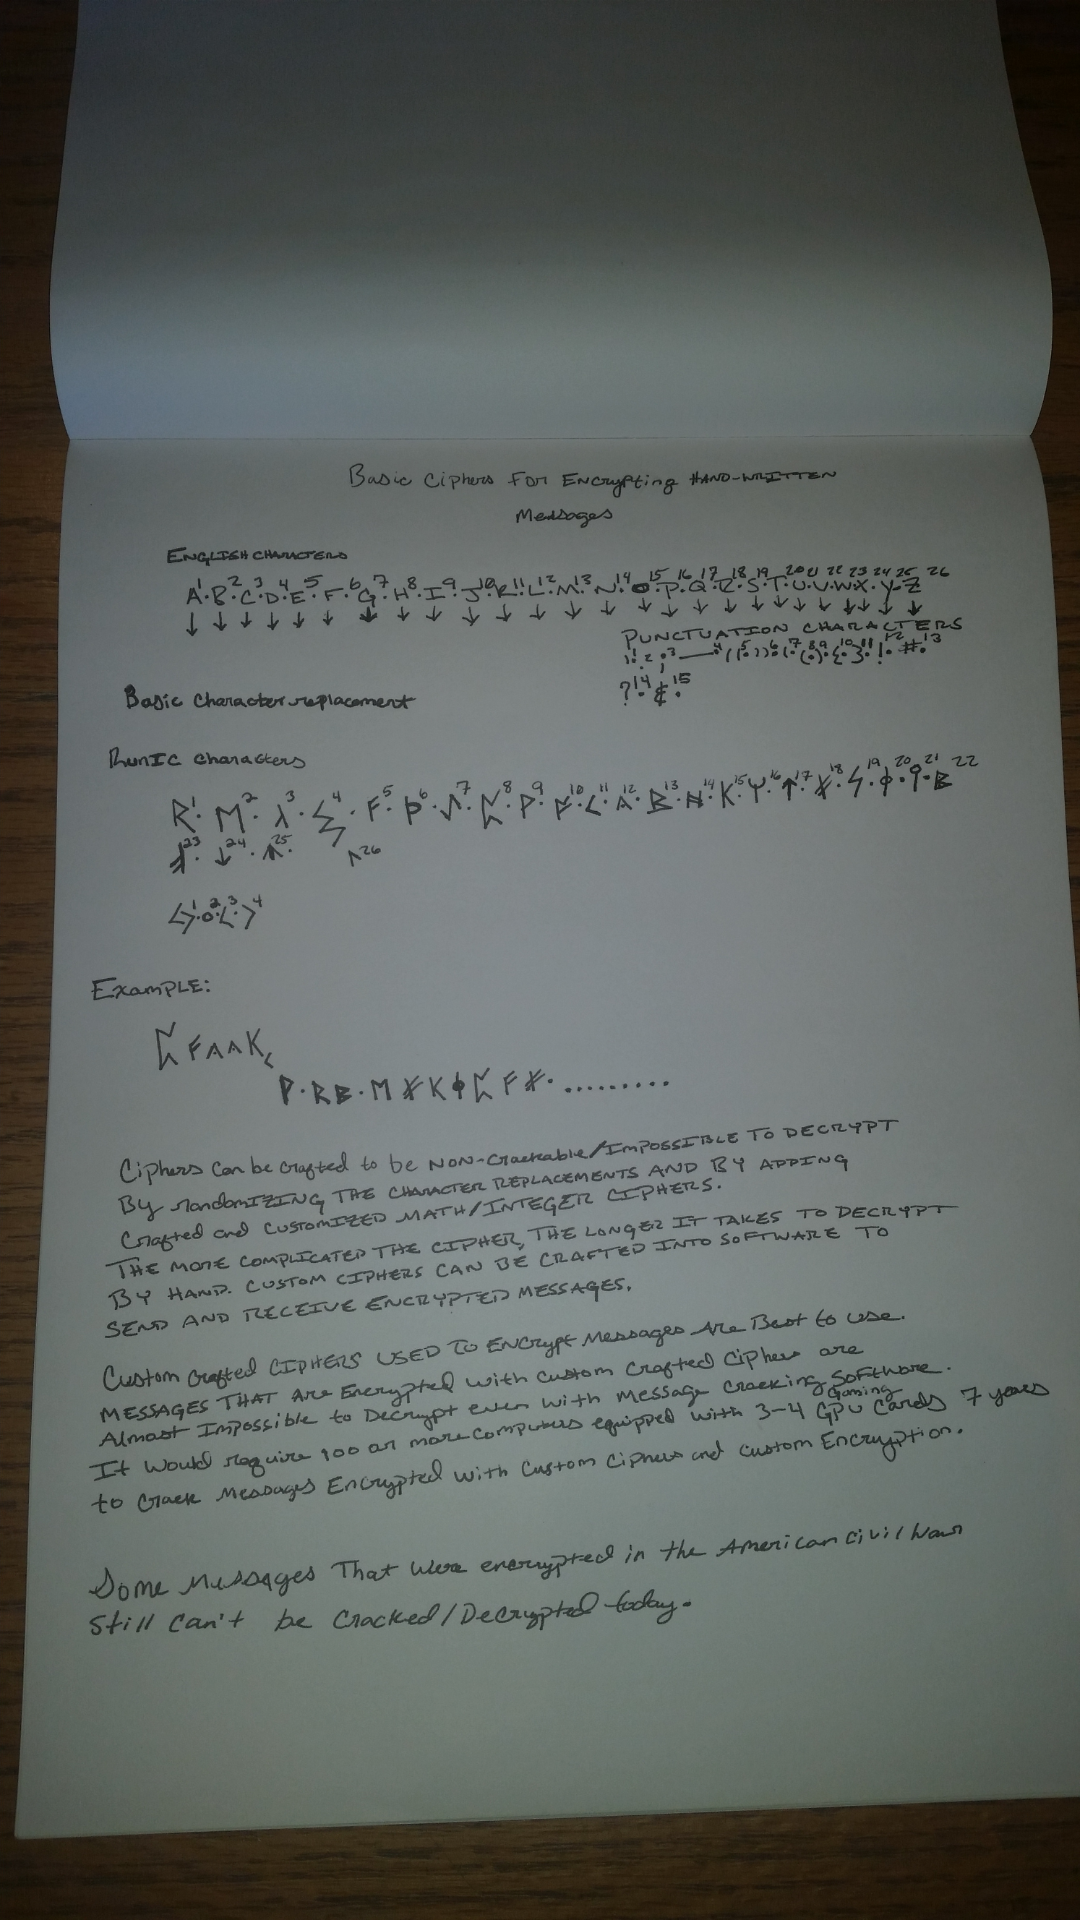 Basic Ciphers For Encrypting HAND-WRITTEN
Messages
ENGLISH CHARACTERS
A¹·B²·C³·D⁴·E⁵·F·⁶G⁷·H⁸·I⁹·J¹⁰·K¹¹·L¹²·M¹³·N¹⁴·O¹⁵·P¹⁶·Q¹⁷·R¹⁸·S¹⁹·T²⁰·U²¹·V²²·W²³·X²⁴·Y²⁵·Z²⁶
↓ ↓ ↓ ↓ ↓ ↓ ↓ ↓ ↓ ↓ ↓ ↓ ↓ ↓ ↓ ↓ ↓ ↓ ↓ ↓ ↓ ↓ ↓ ↓ ↓
PUNCTUATION CHARACTERS
?¹⁴· &¹⁵·
Basic Character replacement
RunIC Characters
Example:
Ciphers Can be Crafted to be NON-Crackable/Impossible TO DECRYPT
By randomIZING THE CHARACTER REPLACEMENTS AND BY ADDING
Crafted and CUSTOMIZED MATH/INTEGER CIPHERS.
THE MORE COMPLICATED THE CIPHER, THE LONGER IT TAKES TO DECRYPT
BY HAND. CUSTOM CIPHERS CAN BE CRAFTED INTO SOFTWARE TO
SEND AND RECEIVE ENCRYPTED MESSAGES.
Custom Crafted CIPHERS USED TO Encrypt Messages Are Best to use.
MESSAGES THAT Are Encrypted with custom Crafted Ciphers are
Almost Impossible to Decrypt even with Message Cracking Software.
It Would require 100 or more computers equipped with 3-4 Gaming GPU Cards 7 years
to Crack Messages Encrypted with Custom Ciphers and custom Encryption.
Some Messages That Were encrypted in the American Civil War
Still Can't be Cracked/Decrypted today.